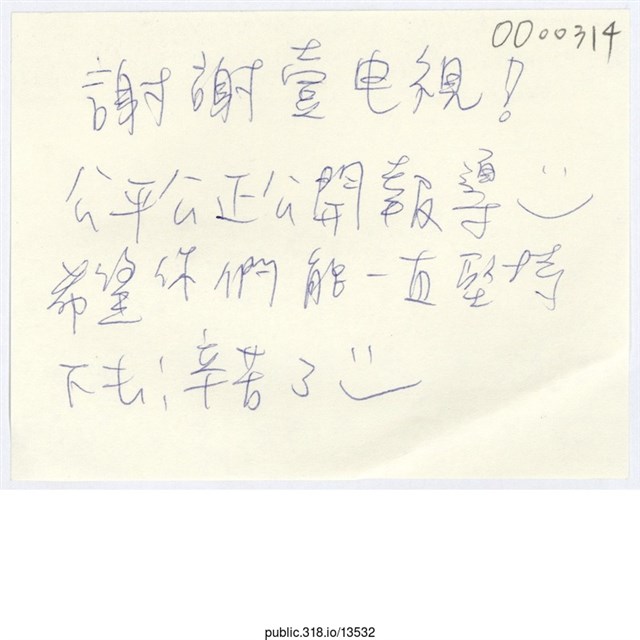 0000314
謝謝壹电視!
公平公正公開報導
希望你們能一直堅持
下去; 辛苦了
public.318.io/13532